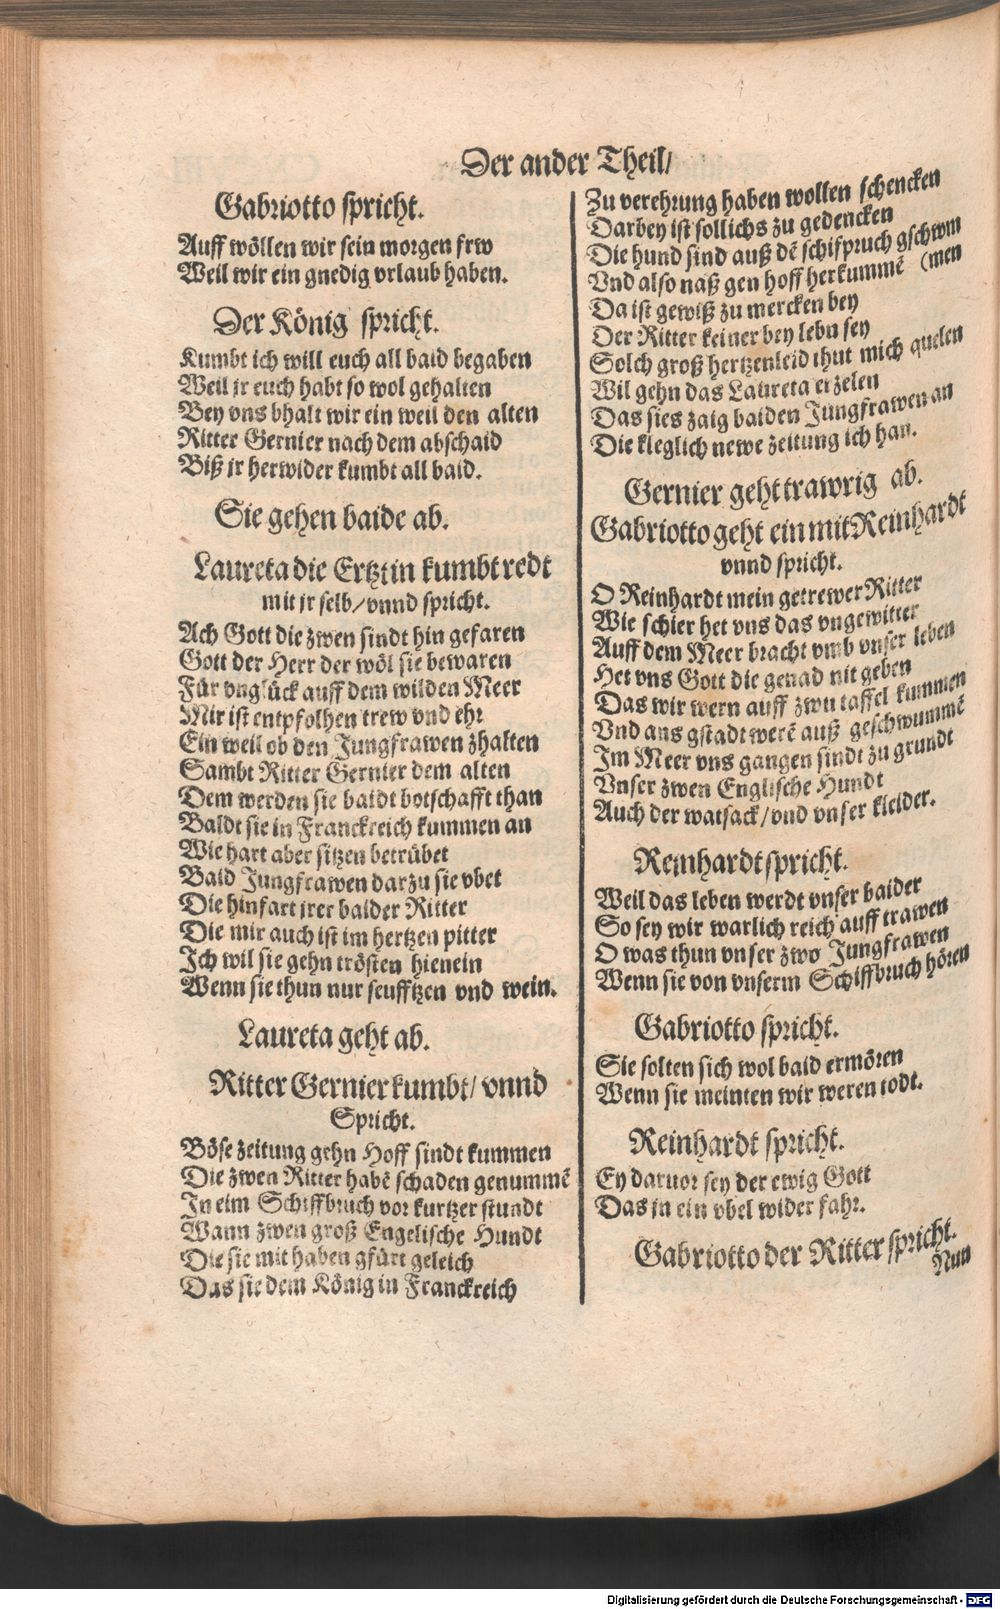 Der ander Theil/
Gabriotto spricht.
Auff wöllen wir sein morgen frw
Weil wir ein gnedig vrlaub haben.
Der König spricht.
Kumbt ich will euch all baid begaben
Weil jr euch habt so wol gehalten
Bey vns bhalt wir ein weil den alten
Ritter Gernier nach dem abschaid
Biß jr herwider kumbt all baid.
Sie gehen baide ab.
Laureta die Ertztin kumbt redt
mit jr selb/ vnnd spricht.
Ach Gott die zwen sindt hin gefaren
Gott der Herr der wöl sie bewaren
Für vnglück auff dem wilden Meer
Mir ist entpfolhen trew vnd ehr
Ein weil ob den Jungfrawen zhalten
Sambt Ritter Gernier dem alten
Dem werden sie baldt botschafft than
Baldt sie in Franckreich kummen an
Wie hart aber sitzen betrübet
Baid Jungfrawen darzu sie vbet
Die hinfart jrer baider Ritter
Die mir auch ist im hertzen pitter
Ich wil sie gehn trösten hienein
Wenn sie thun nur seufftzen vnd wein.
Laureta geht ab.
Ritter Gernier kumbt/ vnnd
Spricht.
Böse zeitung gehn Hoff sindt kummen
Die zwen Ritter habē schaden genummē
In eim Schiffbruch vor kurtzer stundt
Wann zwen groß Engelische Hundt
Die sie mit haben gfürt geleich
Das sie dem König in Franckreich
Zu verehrung haben wollen schencken
Darbey ist sollichs zu gedencken
Die hund sind auß dē schifpruch gschwm
Vnd also naß gen hoff herkummē (men
Da ist gewiß zu mercken bey
Der Ritter keiner bey lebn sey
Solch groß hertzenleid thut mich quelen
Wil gehn das Laureta erzelen
Das sies zaig baiden Jungfrawen an
Die kleglich newe zeitung ich han.
Gernier geht trawrig ab.
Gabriotto geht ein mit Reinhardt
vnnd spricht.
O Reinhardt mein getrewer Ritter
Wie schier het vns das vngewitter
Auff dem Meer bracht vmb vnser leben
Het vns Gott die genad nit geben
Das wir wern auff zwu taffel kummen
Vnd ans gstadt werē auß geschwummē
Im Meer vns gangen sindt zu grundt
Vnser zwen Englische Hundt
Auch der watsack/ vnd vnser kleider.
Reinhardt spricht.
Weil das leben werdt vnser baider
So sey wir warlich reich auff trawen
O was thun vnser zwo Jungfrawen
Wenn sie von vnserm Schiffbruch hören
Gabriotto spricht.
Sie solten sich wol baid ermören
Wenn sie meinten wir weren todt.
Reinhardt spricht.
Ey daruor sey der ewig Gott
Das jn ein vbel wider fahr.
Gabriotto der Ritter spricht.
Nun
Digitalisierung gefördert durch die Deutsche Forschungsgemeinschaft - DFG